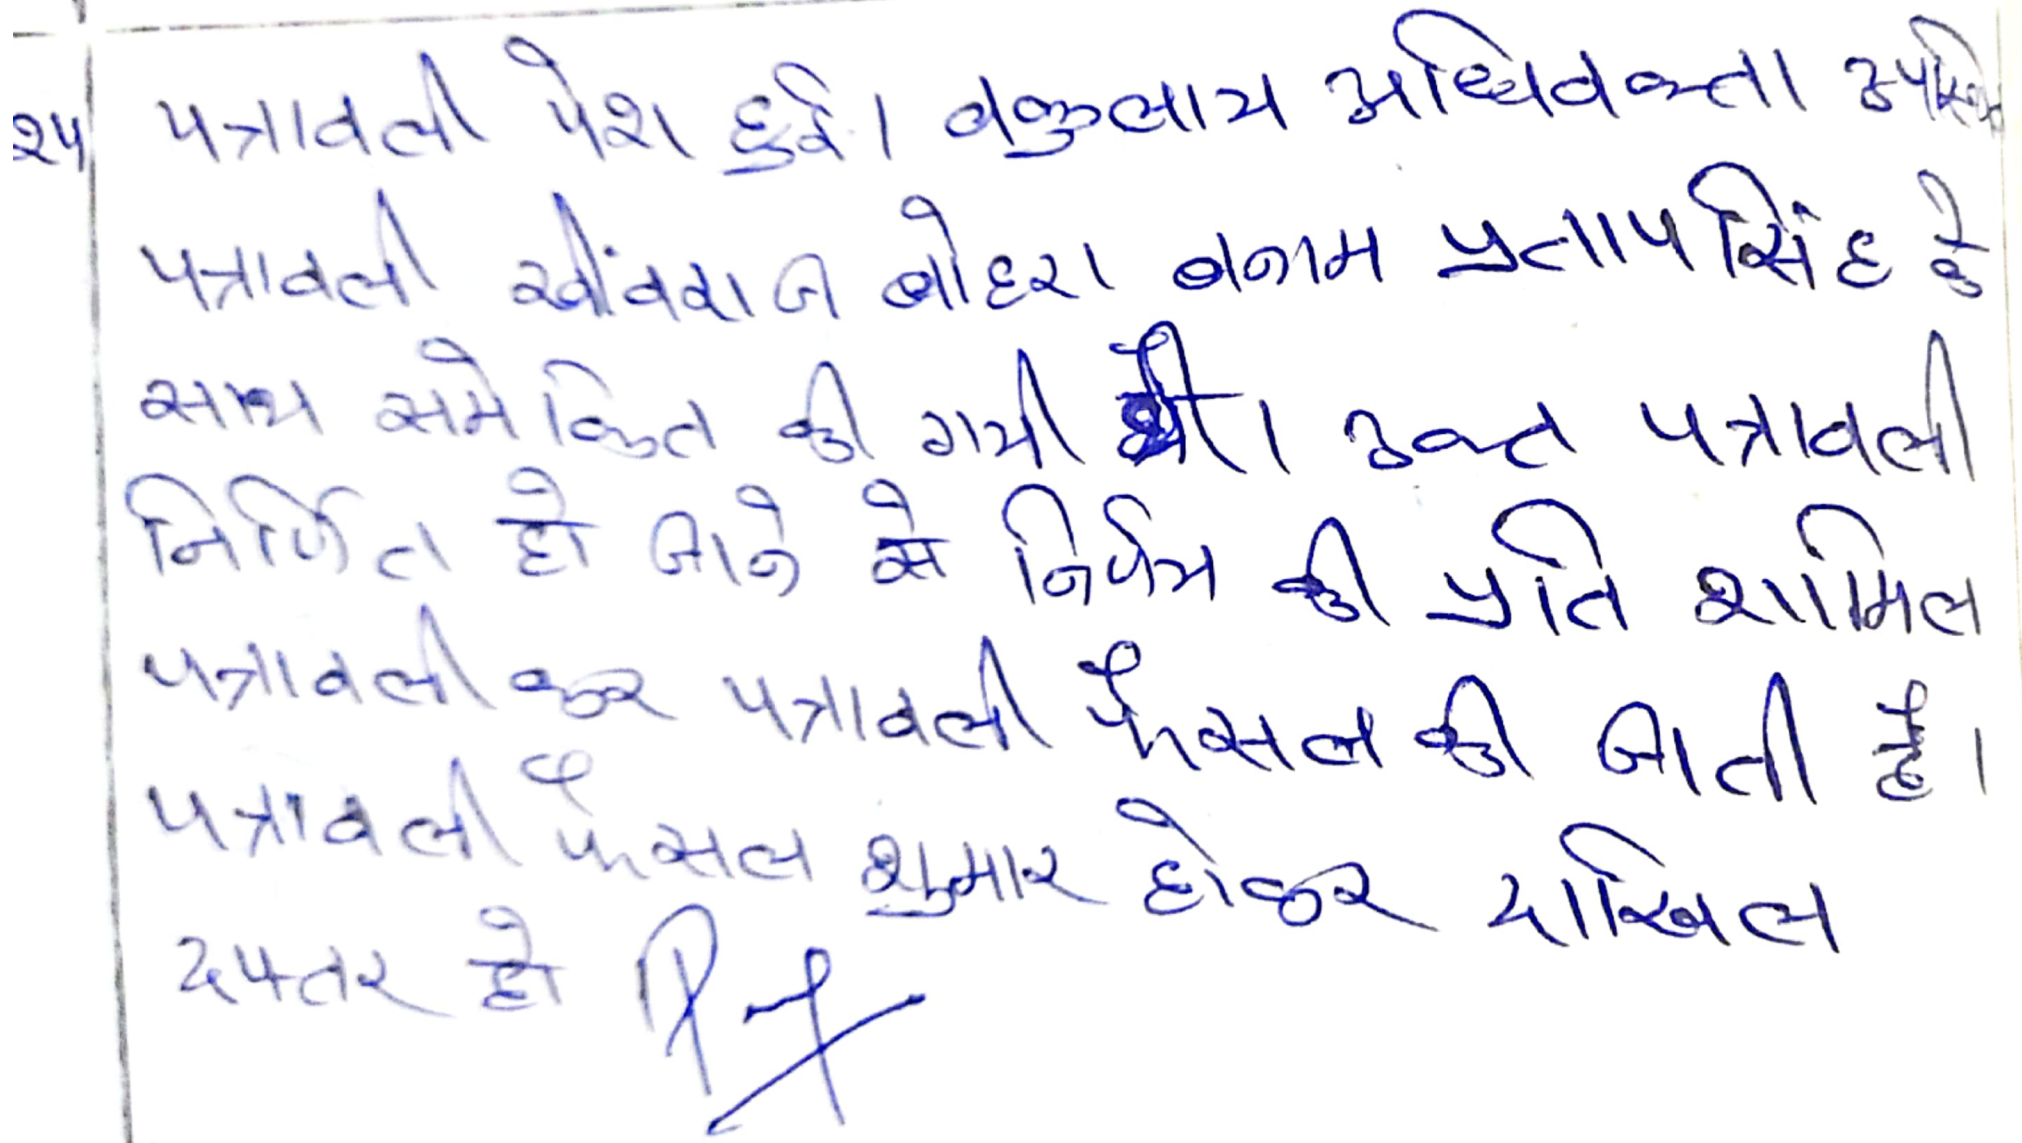 २५ पत्रावली पेश हुई। वकुलाय अधिवक्ता उपस्थित
पत्रावली खींवराज बोहरा बनाम प्रतापसिंह के
साथ समेकित की गयी थी। उक्त पत्रावली
निर्णित हो जाने से निर्णय की प्रति शामिल
पत्रावली कर पत्रावली फैसल की जाती है।
पत्रावली फैसल शुमार होकर दाखिल
दफ्तर हो